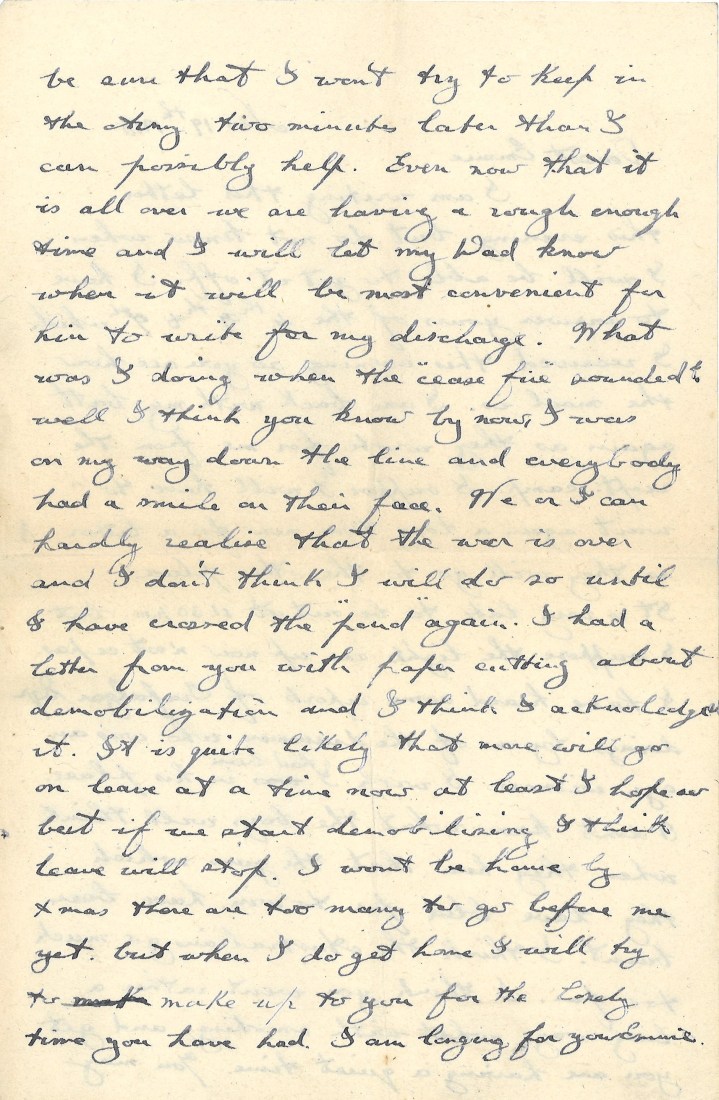 be sure that I won't try to keep in
the Army two minutes later than I
can possibly help. Even now that it
is all over we are having a rough enough
time and I will let my Dad know
when it will be most convenient for
him to write for my discharge. What
was I doing when the "cease fire" sounded
well I think you know by now, I was
on my way down the line and everybody
had a smile on their face. We or I can
hardly realise that the war is over
and I don't think I will do so until
I have crossed the "pond" again. I had a
letter from you with paper cutting about
demobilization and I think I acknoledged
it. It is quite likely that more will go
on leave at a time now at least I hope so
but if we start demobilising I think
leave will stop. I wont be home by
Xmas there are too many to go before me
yet. but when I do get home I will try
to make up to you for the lonely
time you have had. I am longing for you Emmie.